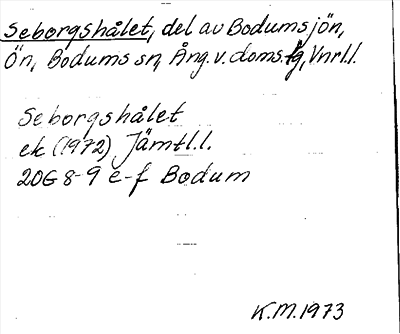 Seborgshålet, del av Bodumsjön,
Ön, Bodums sn, Ång. v. doms.g, Vnrl.l.
Seborgshålet
ek (1972) Jämtl.l.
20G 8-9 e-f Bodum
K.M. 1973